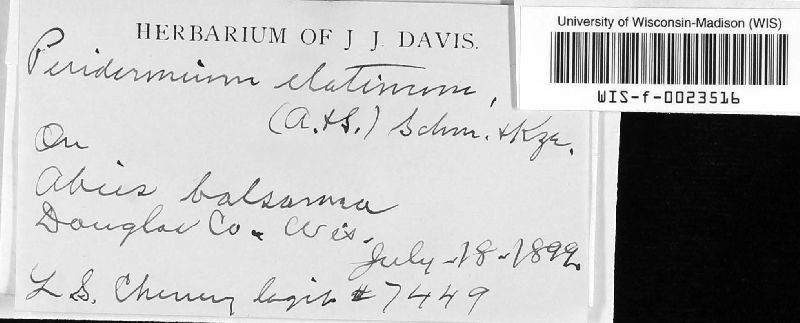 HERBARIUM OF J. J. DAVIS.
Peridermium elatinum,
(A.&S.) Schm. & Kze.
On
Abies balsamea
Douglas Co. Wis.
July-18-1899.
L S. Cheney legit #7449
University of Wisconsin-Madison (WIS)
WIS-f-0023516